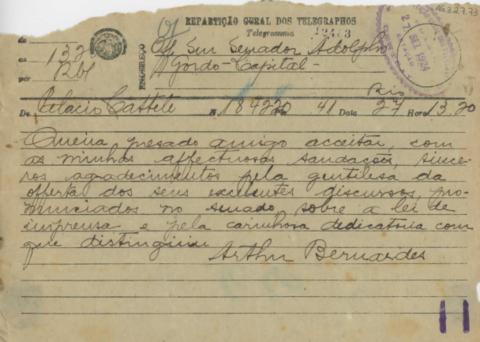 REPARTIÇÃO GERAL DOS TELEGRAPHOS
Telegramma
12473
ENDEREÇO
Snr Senador Adolpho
Gordo - Capital -
Rio
27 SET 1924
De Palacio Cattete N. 184220 41 Data 27 Hora 13,20
Queira presado amigo acceitar, com
as minhas affectuosas saudações, since
ros agradecimentos pela gentilesa da
offerta dos seus excellentes discursos, pro-
nunciados no senado sobre a lei de
imprensa e pela carinhosa dedicatoria com
que distinguiu
Arthur Bernardes